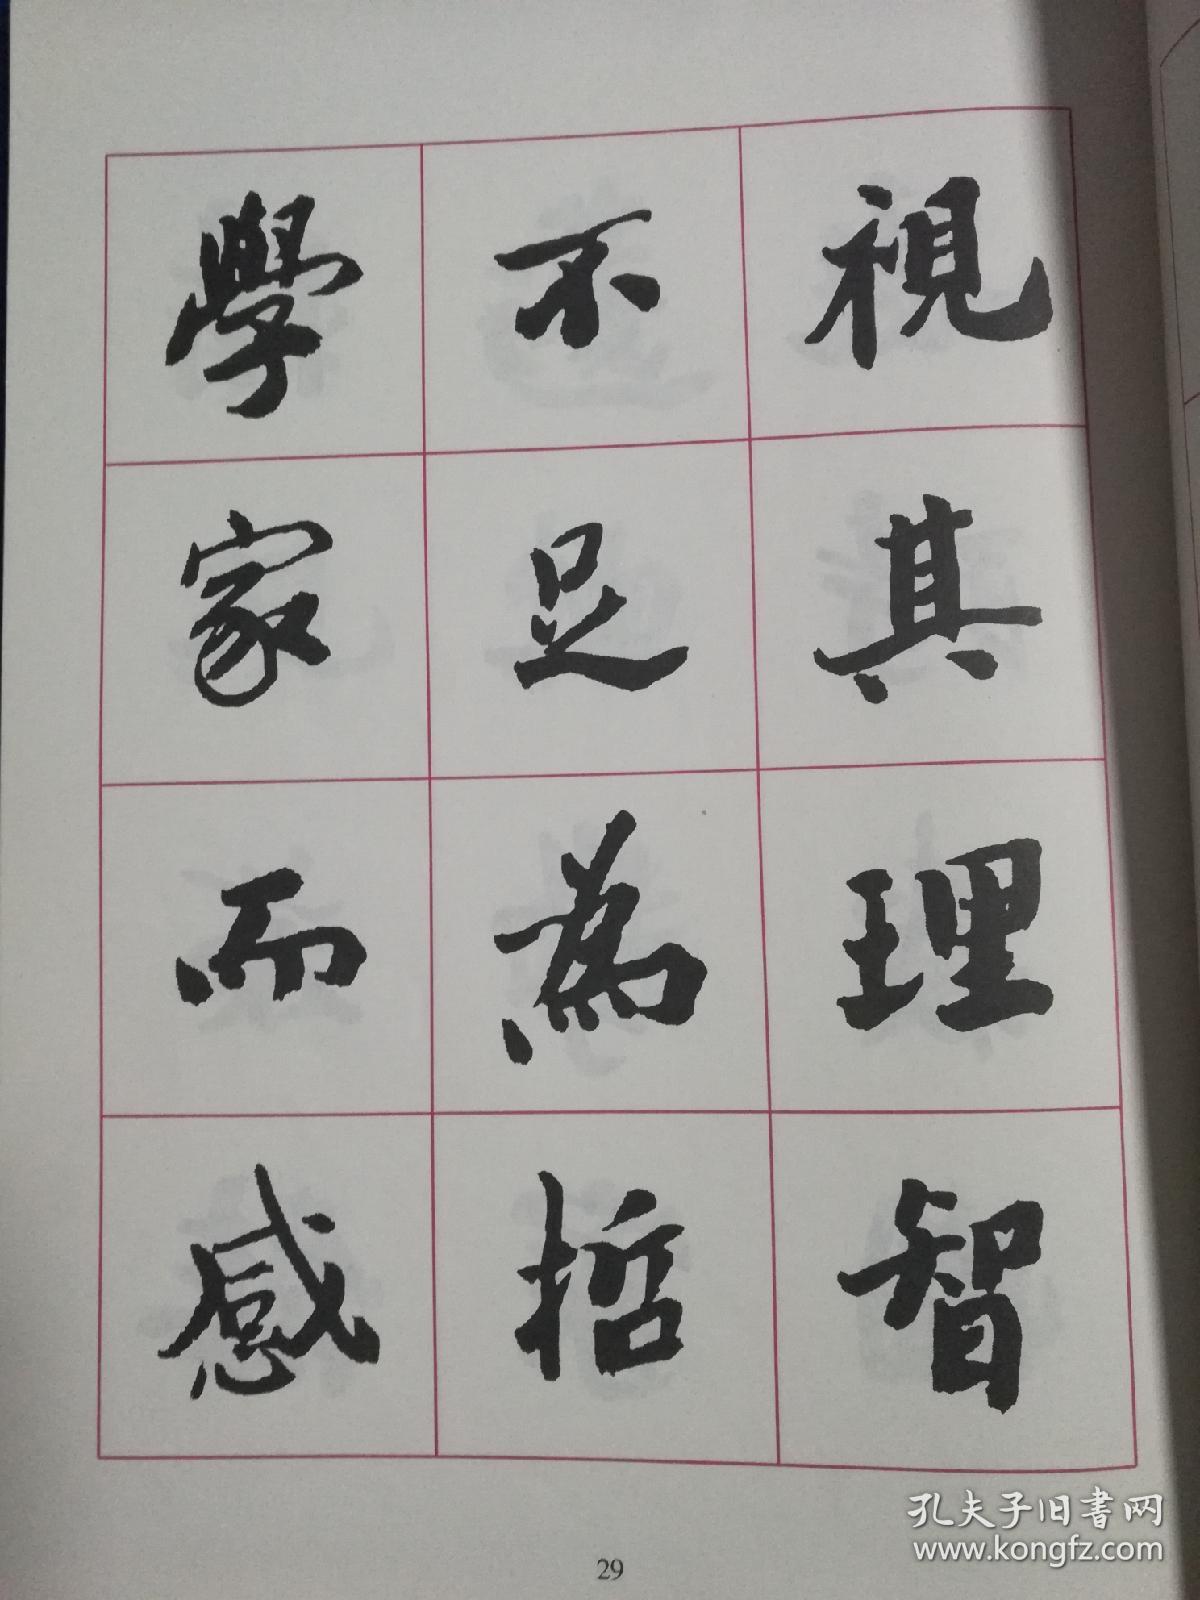 視其理智
不足為哲
學家而感
29
孔夫子旧書网
www.kongfz.com